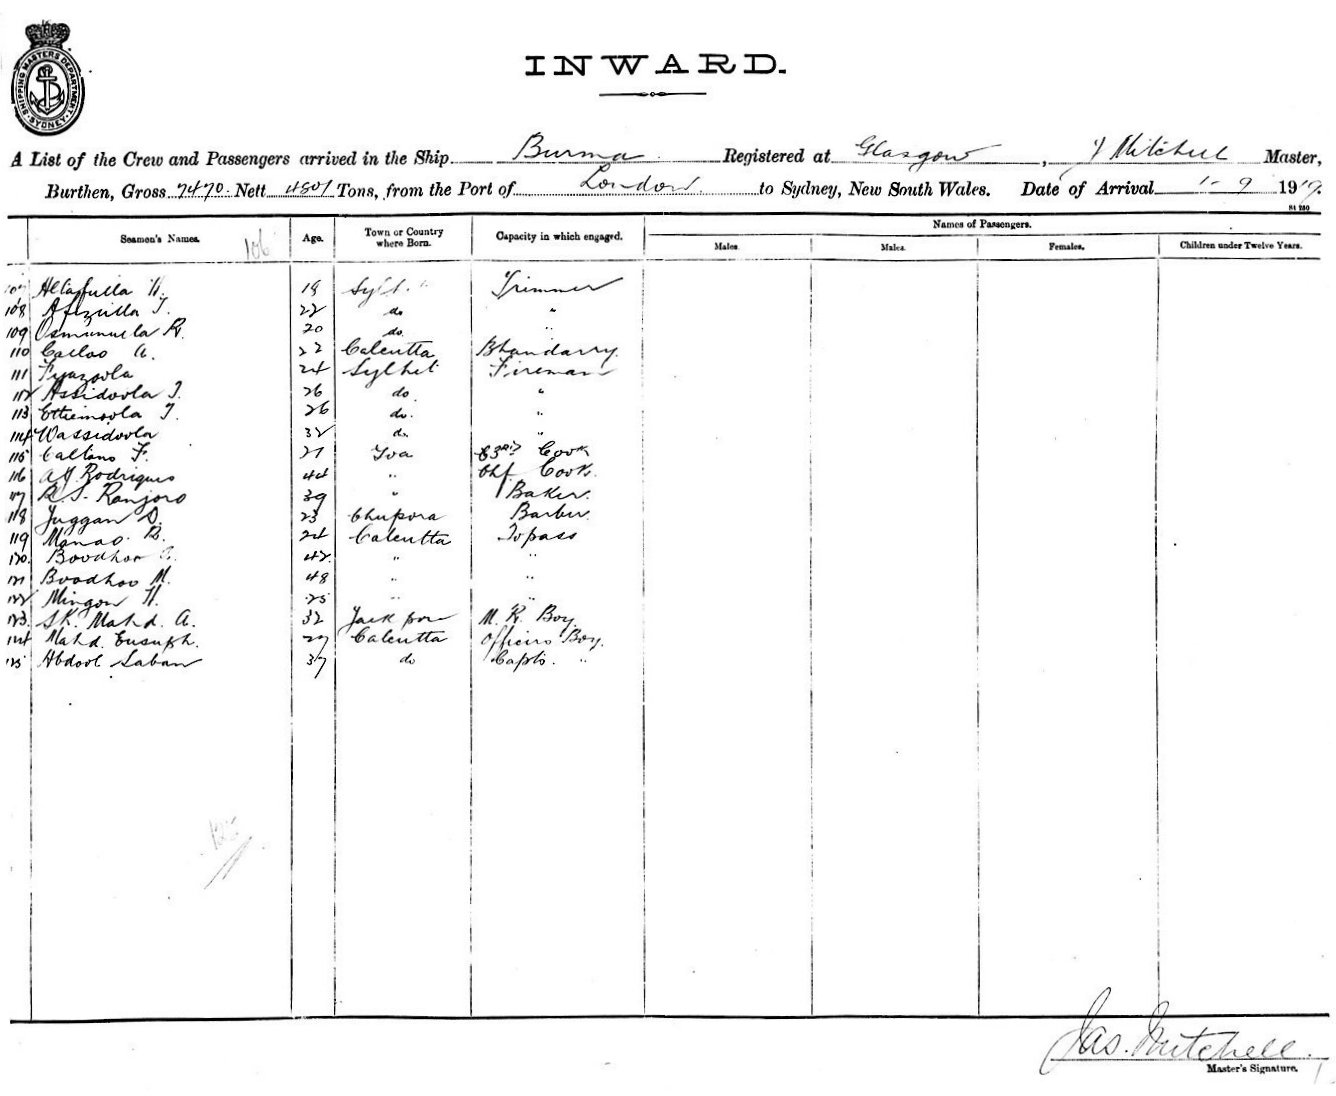 SHIPPING MASTERS DEPARTMENT SYDNEY
INWARD.
A List of the Crew and Passengers arrived in the Ship Burma Registered at Glasgow, J Mitchell Master,
Burthen, Gross 7470 Nett 4801 Tons, from the Port of London to Sydney, New South Wales. Date of Arrival 1-9 1919.
Seamen's Names. Age. Town or Country where Born. Capacity in which engaged. Names of Passengers.
Males. Males. Females. Children under Twelve Years.
106
107 H. 19 Trimmer
108 Afizulla T. 22 do "
109 R. 20 do "
110 A. 22 Calcutta Bhandarry
111 Fyazoola 24 Sylhet Fireman
112 Assidoola T. 26 do "
113 T. 26 do "
114 Wassidoola 32 do "
115 F. 21 Goa 3rd Cook
116 Rodrigues 44 " Chf Cook
117 39 " Baker
118 Juggan D. 23 Chupora Barber
119 B. 24 Calcutta Topass
120 Boodhoo 42 " "
121 Boodhoo M. 48 " "
122 H. 25 " "
123 Sk. Mahd. A. 32 M. R. Boy
124 Mahd. Eusuph. 29 Calcutta Officers Boy.
125 Abdool Saban 37 do Capts. "
125
Jas. Mitchell.
Master's Signature.